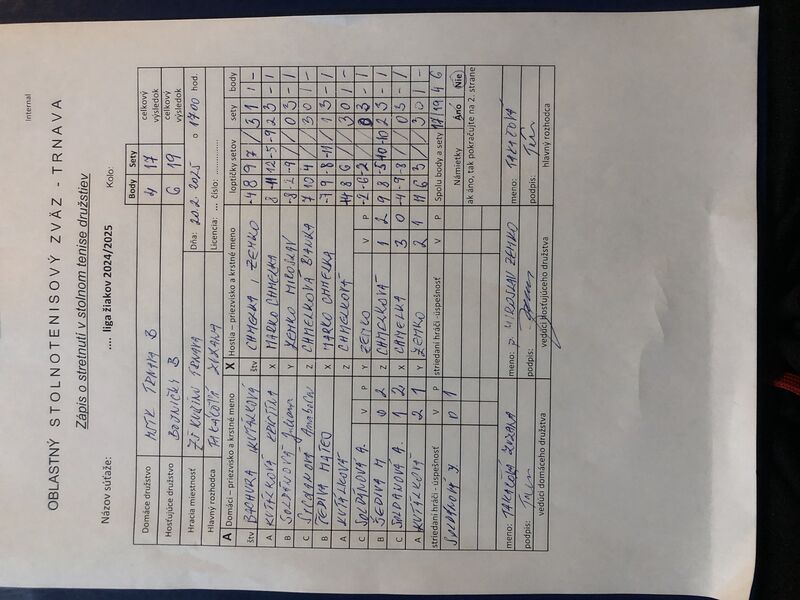 Internal
OBLASTNÝ STOLNOTENISOVÝ ZVÄZ - TRNAVA
Zápis o stretnutí v stolnom tenise družstiev
Názov súťaže: .... liga žiakov 2024/2025 Kolo:
Body Sety
Domáce družstvo MTK TRNAVA B 4 17 celkový výsledok
Hosťujúce družstvo BOJNIČKY B 6 19 celkový výsledok
Hracia miestnosť TRNAVA Dňa: 20.2. 2025 o 17 00 hod.
Hlavný rozhodca TAKÁČOVÁ ZUZANA Licencia: ... číslo:
A Domáci – priezvisko a krstné meno X Hostia – priezvisko a krstné meno loptičky setov sety body
štv BACHURA KUTÁLKOVÁ štv CHMELKA , ZEMKO -4 8 9 7 / 3 1 1 -
A KUTÁLKOVÁ KRISTÍNA X MARKO CHMELKA 8 -11 12 -5 -9 2 3 - 1
B SOLDÁNOVÁ Juliana Y ZEMKO MIROSLAV -8 -2 -9 / / 0 3 - 1
C SOLDANOVÁ Anabela Z CHMELKOVÁ BIANKA 7 10 4 / / 3 0 1 -
B MATEO X MARKO CHMELKA -7 9 -8 -11 / 1 3 - 1
A KUTÁLKOVÁ Z CHMELKOVÁ 8 6 / / 3 0 1 -
C SOLDÁNOVÁ A. V P Y ZEMKO V P -2 -6 -2 / / 0 3 - 1
B M 0 2 Z CHMELKOVÁ 1 2 9 8 -5 -10 -10 2 3 - 1
C SOLDANOVÁ A. 1 2 X CHMELKA 3 0 -4 -9 -8 / / 0 3 - 1
A KUTÁLKOVÁ 2 1 Y ZEMKO 2 1 11 6 3 / / 3 0 1 -
striedaní hráči -úspešnosť V P striedaní hráči -úspešnosť V P Spolu body a sety 17 19 4 6
0 1 Námietky Áno Nie
ak áno, tak pokračujte na 2. strane
meno: TAKÁČOVÁ ZUZANA meno: MIROSLAV ZEMKO meno: TAKÁČOVÁ
podpis: podpis: podpis:
vedúci domáceho družstva vedúci hosťujúceho družstva hlavný rozhodca